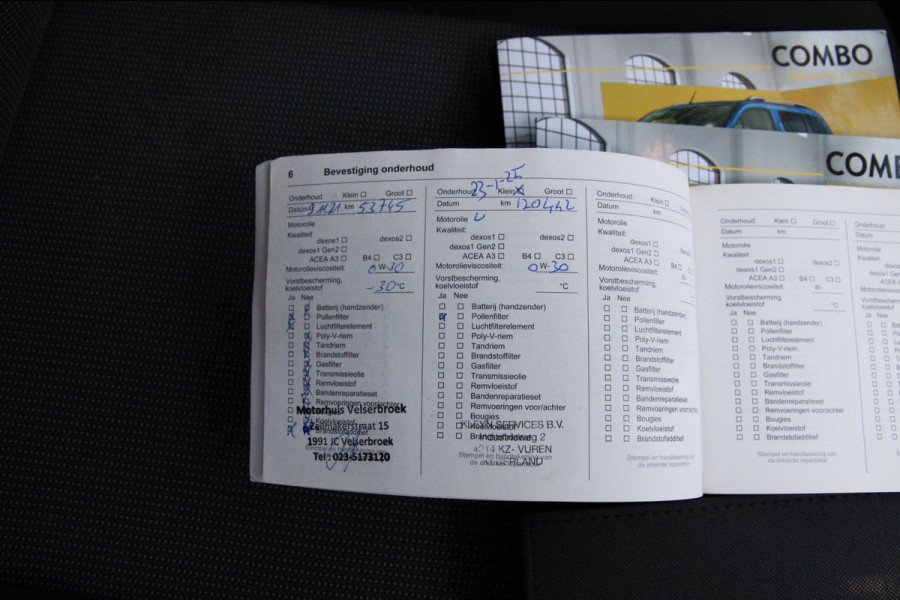 COMBO
COMB
6 Bevestiging onderhoud
Onderhoud: Klein ☐ Groot ☐
Datum 9.11.21 km 53745
Motorolie
Kwaliteit:
dexos1 ☐ dexos2 ☐
dexos1 Gen2 ☐
ACEA A3 ☐ B4 ☐ C3 ☐
Motorolieviscositeit: 0W-30
Vorstbescherming,
koelvloeistof -30°C
Ja Nee
Batterij (handzender)
Pollenfilter
Luchtfilterelement
Poly-V-riem
Tandriem
Brandstoffilter
Gasfilter
Transmissieolie
Remvloeistof
Bandenreparatieset
Remvoeringen voor/achter
Motorhuis Velserbroek
Zeilmakerstraat 15
1991 JC Velserbroek
Tel.: 023-5173120
23-1-25
Onderhoud: Klein Groot ☐
Datum km 120442
Motorolie
Kwaliteit:
dexos1 ☐ dexos2 ☐
dexos1 Gen2 ☐
ACEA A3 ☐ B4 ☐ C3 ☐
Motorolieviscositeit: 0W-30
Vorstbescherming,
koelvloeistof °C
Ja Nee
Batterij (handzender)
Pollenfilter
Luchtfilterelement
Poly-V-riem
Tandriem
Brandstoffilter
Gasfilter
Transmissieolie
Remvloeistof
Bandenreparatieset
Remvoeringen voor/achter
Bougies
KLEYN SERVICES B.V.
Industrieweg 2
4214 KZ- VUREN
Stempel en handtekening van
Onderhoud: Klein ☐
Datum km
Motorolie
Kwaliteit:
dexos1 ☐
dexos1 Gen2 ☐
ACEA A3 ☐ B4
Motorolieviscositeit:
Vorstbescherming,
koelvloeistof
Ja Nee
Batterij (handzender)
Pollenfilter
Luchtfilterelement
Poly-V-riem
Tandriem
Brandstoffilter
Gasfilter
Transmissieolie
Remvloeistof
Bandenreparatieset
Remvoeringen voor/achter
Bougies
Koelvloeistof
Brandstofadditief
Stempel en handtekening van
de erkende reparateur
Onderhoud: Klein ☐ Groot ☐
Datum km
Motorolie
Kwaliteit:
dexos1 ☐ dexos2 ☐
dexos1 Gen2 ☐
ACEA A3 ☐ B4 ☐ C3 ☐
Motorolieviscositeit: W-
Vorstbescherming,
koelvloeistof °C
Ja Nee
Batterij (handzender)
Pollenfilter
Luchtfilterelement
Poly-V-riem
Tandriem
Brandstoffilter
Gasfilter
Transmissieolie
Remvloeistof
Bandenreparatieset
Remvoeringen voor/achter
Bougies
Koelvloeistof
Brandstofadditief
Stempel en handtekening van
de erkende reparateur
Onderhoud:
Datum
Motorolie
Kwaliteit:
Ja Nee